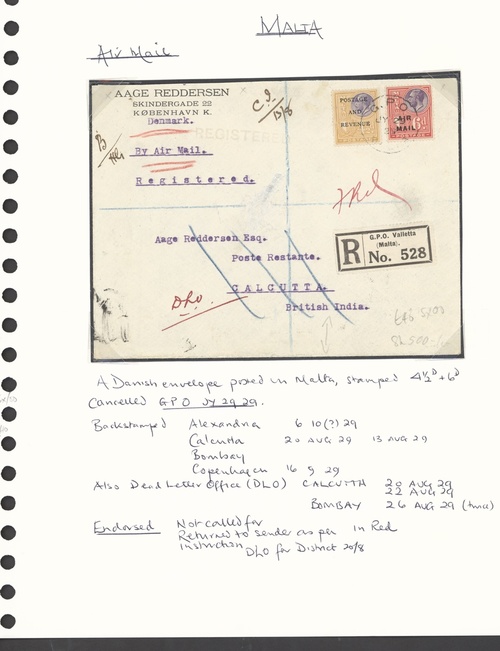 MALTA
Air Mail
AAGE REDDERSEN
SKINDERGADE 22
KØBENHAVN K.
Denmark.
REGISTERED
By Air Mail.
Registered.
POSTAGE
AND
REVENUE
AIR
MAIL
G.P.O.
R
G.P.O. Valletta
(Malta).
No. 528
Aage Reddersen Esq.
Poste Restante.
CALCUTTA.
British India.
DLO.
A Danish envelope posted in Malta, stamped 4½D + 6D
Cancelled G.P.O JY 29 29.
Backstamped Alexandria 6 10(?) 29
Calcutta 20 AUG 29 13 AUG 29
Bombay
Copenhagen 16 9 29
Also Dead Letter Office (DLO) CALCUTTA 20 AUG 29
22 AUG 29
BOMBAY 26 AUG 29 (twice)
Endorsed Not called for
Returned to sender as per in Red
instruction
DLO for District 20/8